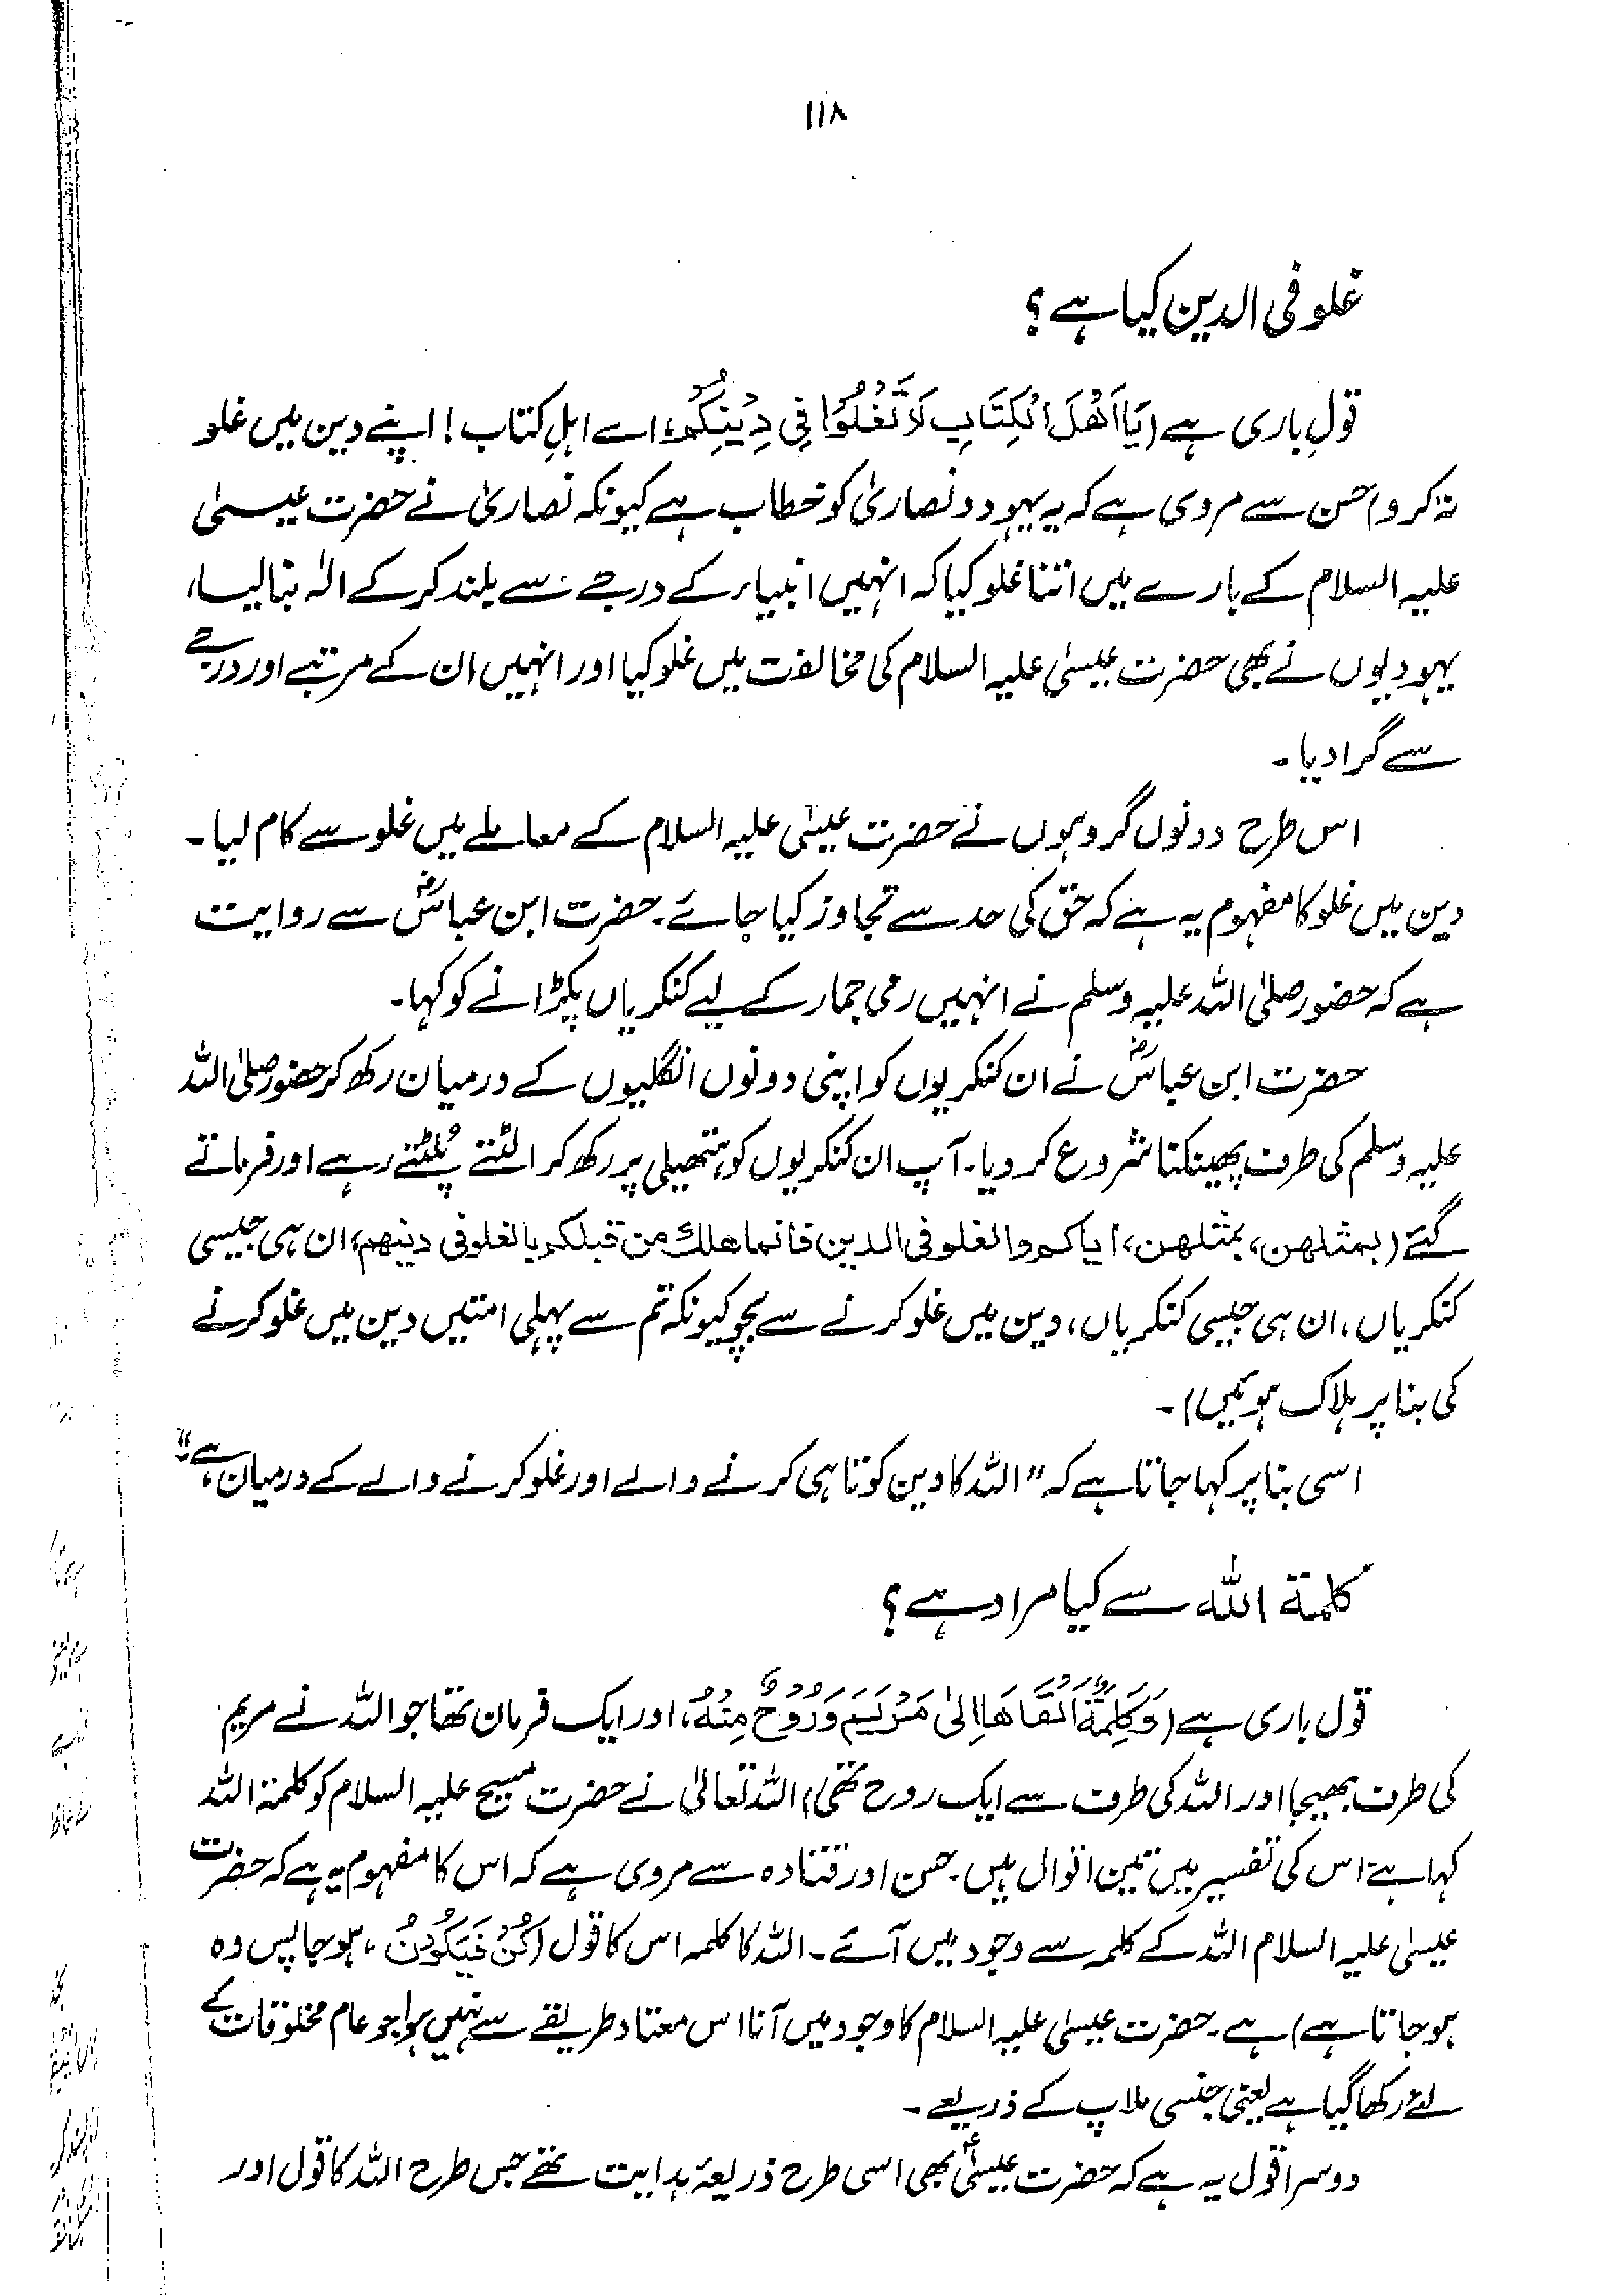 ۱۱۸
غلو فی الدین کیا ہے؟
قولِ باری ہے (یَا اَھْلَ الْکِتَابِ لَا تَغْلُوْا فِیْ دِیْنِکُمْ، اے اہلِ کتاب! اپنے دین میں غلو
نہ کرو) حسن سے مروی ہے کہ یہ یہود و نصاریٰ کو خطاب ہے کیونکہ نصاریٰ نے حضرت عیسیٰ
علیہ السلام کے بارے میں اتنا غلو کیا کہ انہیں انبیاء کے درجے سے بلند کر کے الٰہ بنا لیا،
یہودیوں نے بھی حضرت عیسیٰ علیہ السلام کی مخالفت میں غلو کیا اور انہیں ان کے مرتبے اور درجے
سے گرا دیا۔
اس طرح دونوں گروہوں نے حضرت عیسیٰ علیہ السلام کے معاملے میں غلو سے کام لیا۔
دین میں غلو کا مفہوم یہ ہے کہ حق کی حد سے تجاوز کیا جائے۔ حضرت ابن عباسؓ سے روایت
ہے کہ حضور صلی اللہ علیہ وسلم نے انہیں رمی جمار کے لیے کنکریاں پکڑانے کو کہا۔
حضرت ابن عباسؓ نے ان کنکریوں کو اپنی دونوں انگلیوں کے درمیان رکھ کر حضور صلی اللہ
علیہ وسلم کی طرف پھینکنا شروع کر دیا۔ آپ ان کنکریوں کو ہتھیلی پر رکھ کر الٹتے پُلٹتے رہے اور فرماتے
گئے (بمثلھن، بمثلھن، ایاکم والغلو فی الدین فانما ھلک من قبلکم بالغلو فی دینھم، ان ہی جیسی
کنکریاں، ان ہی جیسی کنکریاں، دین میں غلو کرنے سے بچو کیونکہ تم سے پہلی امتیں دین میں غلو کرنے
کی بنا پر ہلاک ہوئیں)۔
اسی بنا پر کہا جاتا ہے کہ "اللہ کا دین کوتاہی کرنے والے اور غلو کرنے والے کے درمیان ہے"
کلمۃ اللہ سے کیا مراد ہے؟
قول باری ہے (وَکَلِمَۃٌ اَلْقَاھَا اِلٰی مَرْیَمَ وَرُوْحٌ مِنْہُ، اور ایک فرمان تھا جو اللہ نے مریم
کی طرف بھیجا اور اللہ کی طرف سے ایک روح تھی) اللہ تعالیٰ نے حضرت مسیح علیہ السلام کو کلمۃ اللہ
کہا ہے اس کی تفسیر میں تین اقوال ہیں۔ حسن اور قتادہ سے مروی ہے کہ اس کا مفہوم یہ ہے کہ حضرت
عیسیٰ علیہ السلام اللہ کے کلمہ سے وجود میں آئے۔ اللہ کا کلمہ اس کا قول (کُنْ فَیَکُوْنُ، ہو جا پس وہ
ہو جاتا ہے) ہے۔ حضرت عیسیٰ علیہ السلام کا وجود میں آنا اس معتاد طریقے سے نہیں ہوا جو عام مخلوقات کے
لئے رکھا گیا ہے یعنی جنسی ملاپ کے ذریعے۔
دوسرا قول یہ ہے کہ حضرت عیسیٰؑ بھی اسی طرح ذریعۂ ہدایت تھے جس طرح اللہ کا قول اور